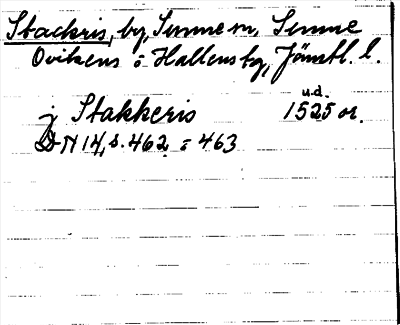 Stackris, by, Sunne sn, Sunne
Ovikens o Hallens tg, Jämtl. l.
j Stakkeris u.d. 1525 or.
DN 14, s. 462 = 463